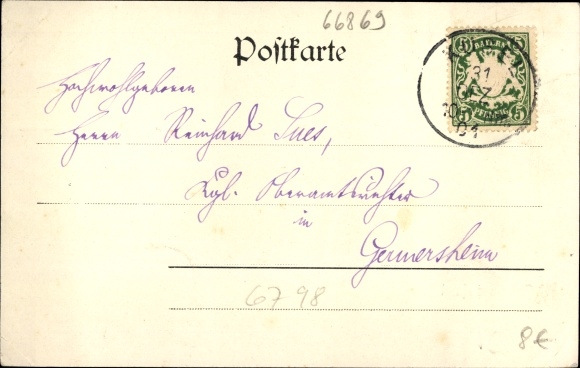 66869
Postkarte
5 BAYERN 5
31
7
10
01
5 PFENNIG 5
Hochwohlgeboren
Herrn Reinhard Lues,
Kgl. Oberamtsrichter
in
Germersheim
6798
8€